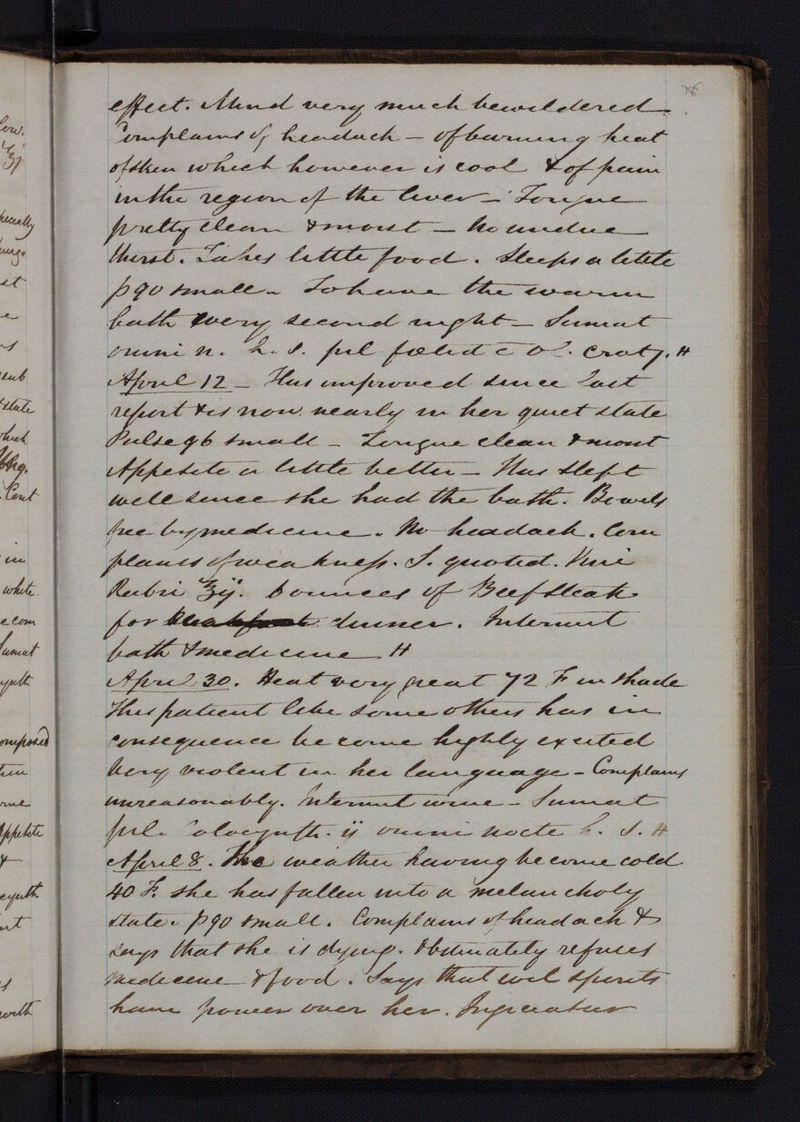 78
effect. Mind very much bewildered.
Complains of headach – of burning heat
of skin which however is cool & of pain
in the region of the liver – Tongue
pretty clean & moist – No undue
thirst. Takes little food. Sleeps a little
p 90 small – To have the warm
bath every second night – Sumat
omni n. h. s. pil fœtid c ol. croty. H
April 12 – Has improved since last
report & is now nearly in her quiet state
Pulse 96 small – Tongue clean & moist
Appetite a little better – Has slept
well since she had the bath. Bowels
free by medicine. No headach. Com
plains of weakness. S. quotid. Vini
Rubri ℥ij. ounces of Beefsteak
for breakfast dinner. Intermit
bath & medicine H
April 30. Heat very great 72 F in shade
This patient like some others has in
consequence become highly excited
Very violent in her language – Complains
unreasonably. Intermit wine – Sumat
pil. Colocynth. ij omni nocte h. s. H
April 8. The weather having become cold
40 F. she has fallen into a melancholy
state. p 90 small. Complains of headach &
says that she is dying. Obstinately refuses
medicine & food. Says that evil spirits
have power over her.
low.
℥j
pecially
st
e
sub
state
which
Cont
in
white
e com
Sumat
cynth
omposed
me
Appetite
&
ocynth
with